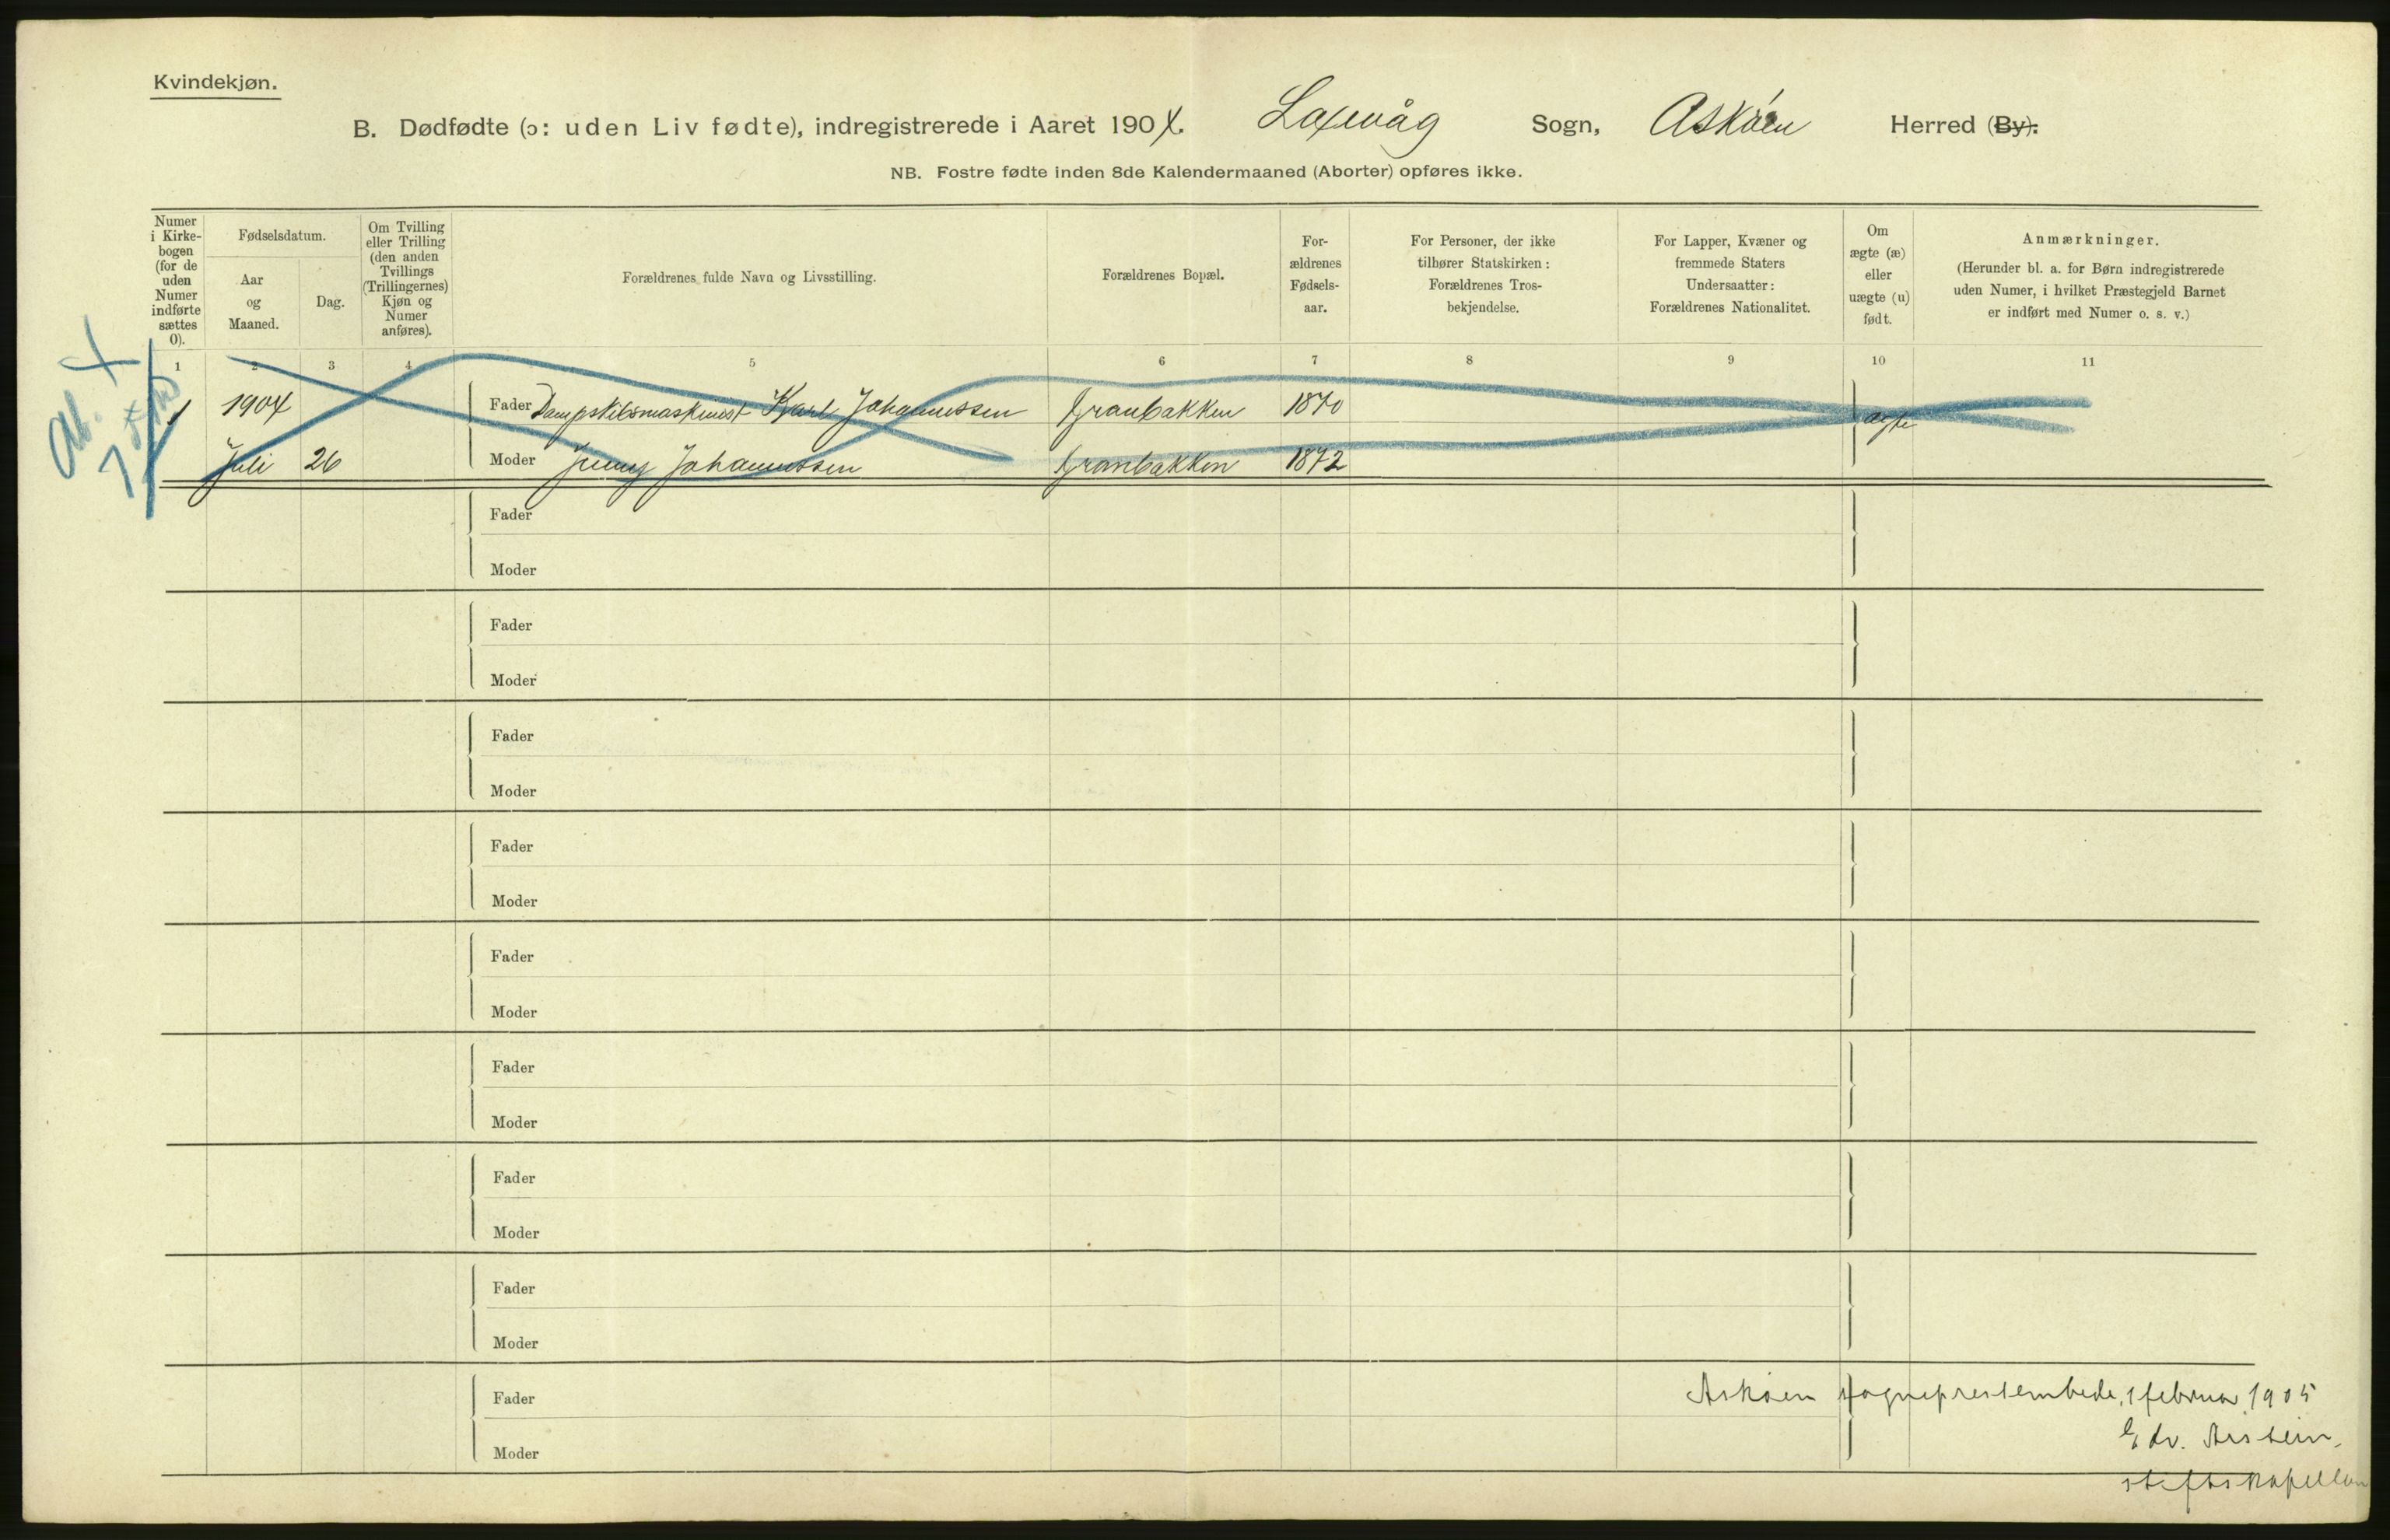 Kvindekjøn.
B. Dødfødte (ɔ: uden Liv fødte), indregistrerede i Aaret 1904. Laxevåg Sogn, Askøen Herred (By).
NB. Fostre fødte inden 8de Kalendermaaned (Aborter) opføres ikke.
Numer i Kirke-bogen (for de uden Numer indførte sættes 0).
Fødselsdatum.
Aar og Maaned.
Dag.
Om Tvilling eller Trilling (den anden Tvillings (Trillingernes) Kjøn og Numer anføres).
Forældrenes fulde Navn og Livsstilling.
Forældrenes Bopæl.
For-ældrenes Fødsels-aar.
For Personer, der ikke tilhører Statskirken: Forældrenes Tros-bekjendelse.
For Lapper, Kvæner og fremmede Staters Undersaatter: Forældrenes Nationalitet.
Om ægte (æ) eller uægte (u) født.
Anmærkninger. (Herunder bl. a. for Børn indregistrerede uden Numer, i hvilket Præstegjeld Barnet er indført med Numer o. s. v.)
1 2 3 4 5 6 7 8 9 10 11
1 1904 Fader Dampskibsmaskinist Karl Johannessen Granbakken 1870 ægte
Juli 26 Moder Jenny Johannessen Granbakken 1872
Fader
Moder
Fader
Moder
Fader
Moder
Fader
Moder
Fader
Moder
Fader
Moder
Fader
Moder
Fader
Moder
Fader Askøen sogneprestembede, 1 februar 1905
Edv.
Moder
stiftskapellan